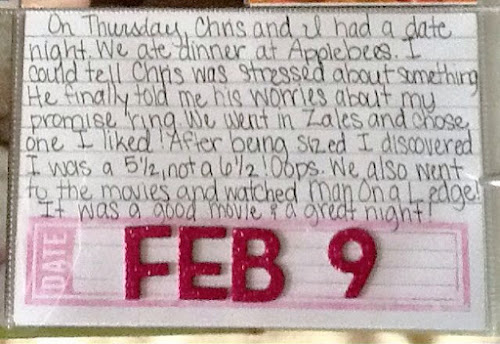 On Thursday, Chris and I had a date
night. We ate dinner at Applebees. I
could tell Chris was stressed about something
He finally told me his worries about my
promise ring. We went in Zales and chose
one I liked! After being sized I discovered
I was a 5 1/2, not a 6 1/2! Oops. We also went
to the movies and watched Man On a Ledge!
It was a good movie & a great night!
DATE
FEB 9